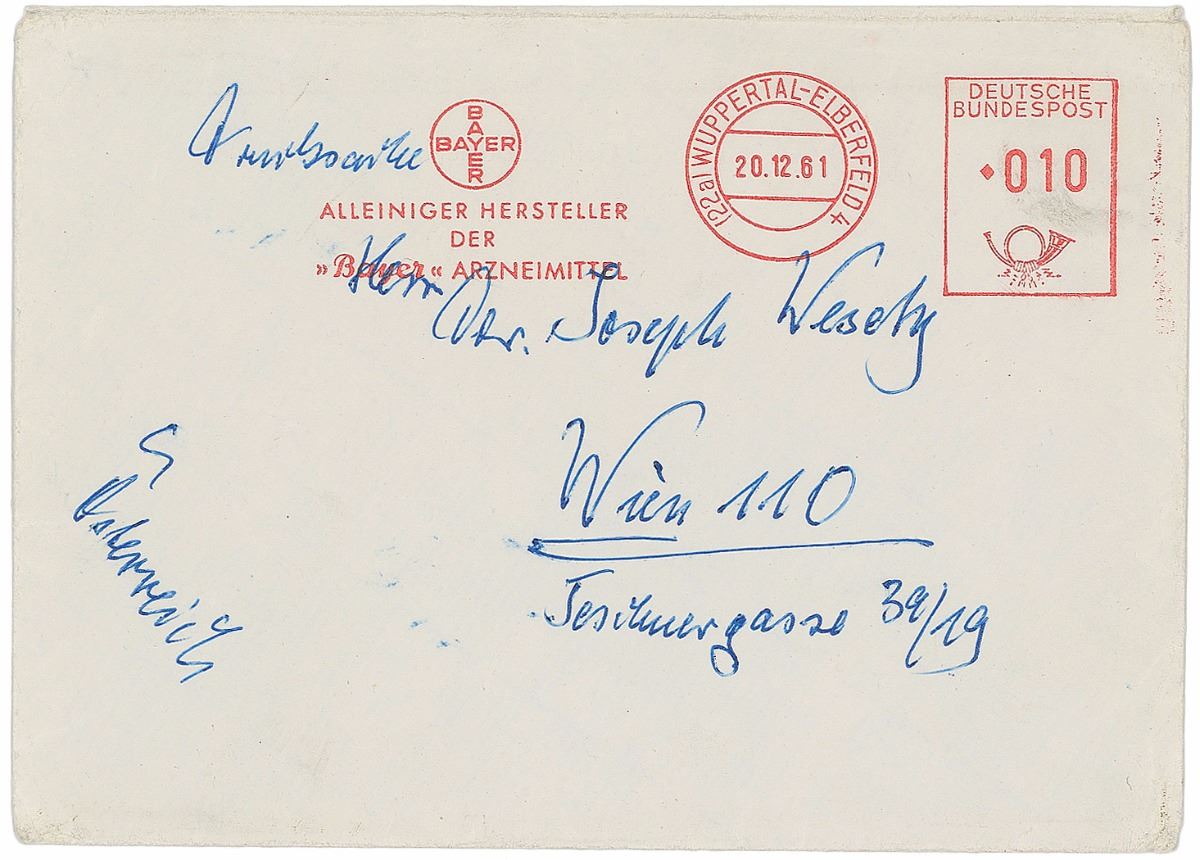 Drucksache
BAYER
BAYER
ALLEINIGER HERSTELLER
DER
»Bayer« ARZNEIMITTEL
(22a) WUPPERTAL-ELBERFELD 4
20.12.61
DEUTSCHE
BUNDESPOST
010
Herrn
Dr. Joseph
Wien 110
39/19
Österreich